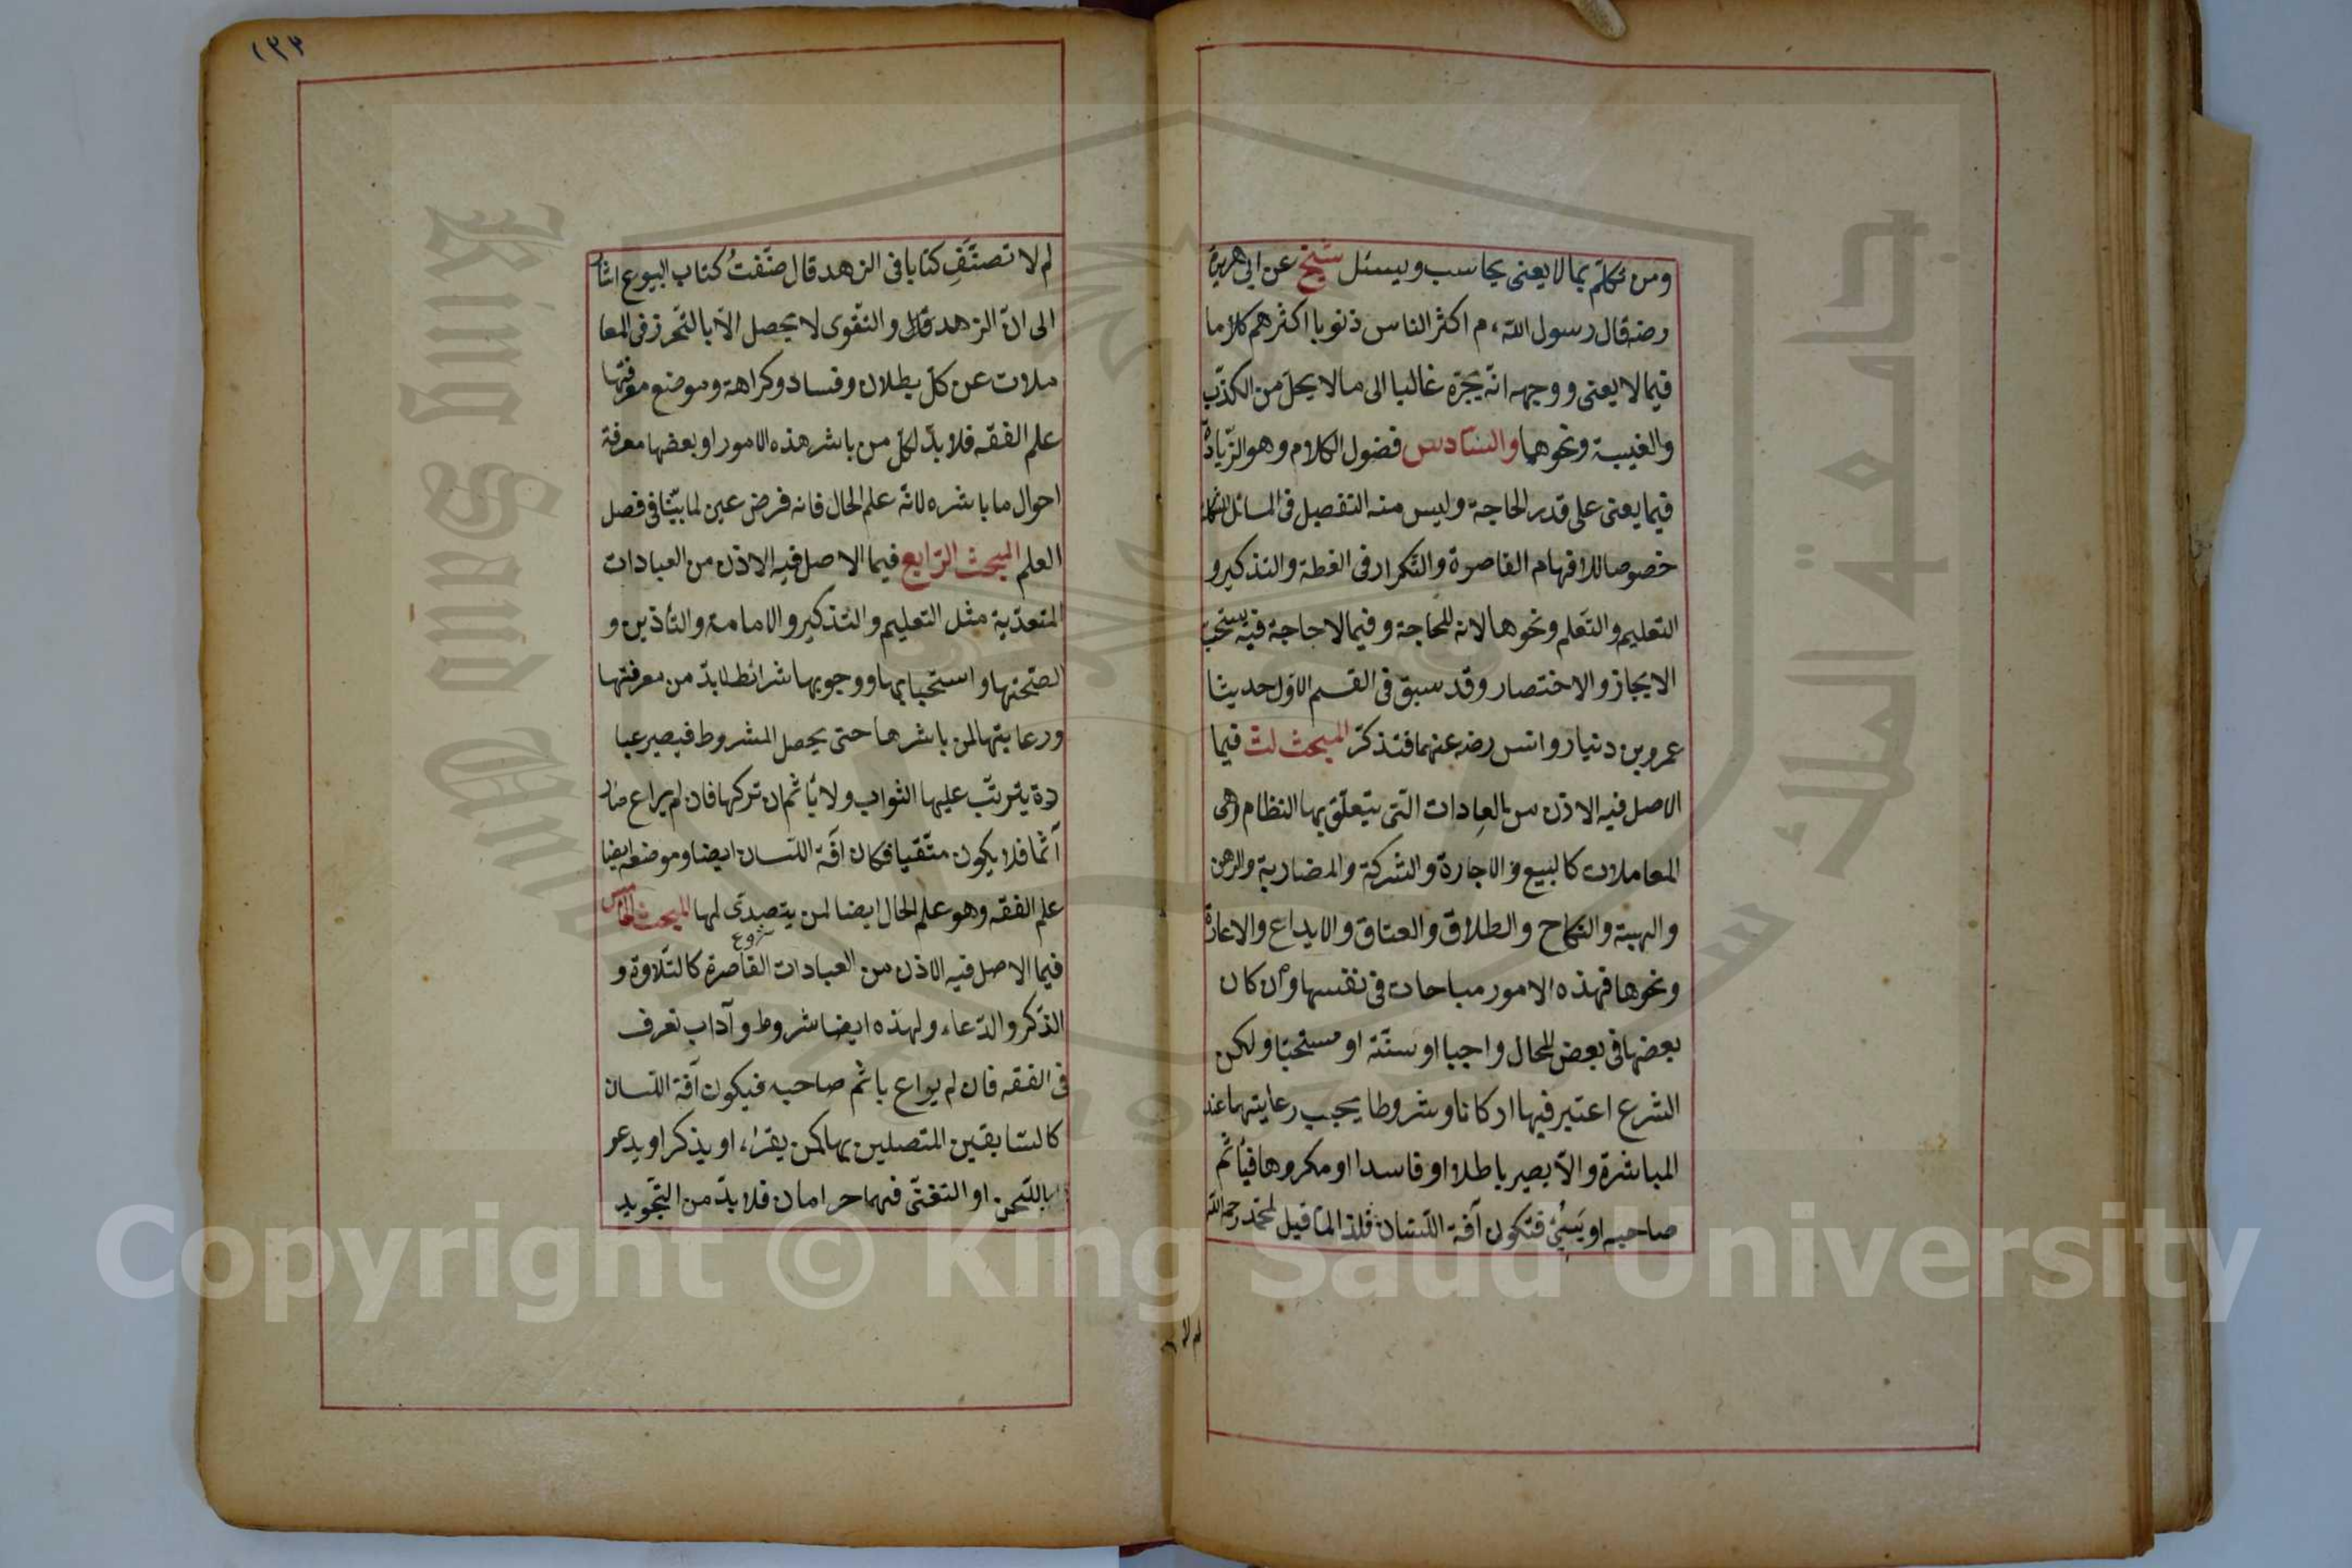 ومن تكلّم بما لا يعنى يحاسب ويسئل شيخ عن ابى هريرة
رضه قال رسول الله ءم اكثر الناس ذنوبا اكثرهم كلاما
فيما لا يعنى ووجهه انّه يجرّه غالبا الى مالا يحلّ من الكذب
والغيبة ونحوهما والسّادس فضول الكلام وهو الزّيادة
فيما يعنى على قدر الحاجة وليس منه التفصيل فى المسائل
خصوصا للافهام القاصرة والتّكرار فى العظة والتذكير و
التعليم والتعّلم ونحوها لانه للحاجة وفيما لا حاجة فيه يستحبّ
الايجاز والاختصار وقد سبق فى القسم الاوّل حديثا
عمرو بن دنيار وانس رضه عنهما فتذكّر المبحث لث فيما
الاصل فيه الاذن من العادات الّتى يتعلّق بها النظام وهى
المعاملات كالبيع والاجارة والشركة والمضاربة والرهن
والهبة والنكاح والطلاق والعتاق والايداع والاعارة
ونحوها فهذه الامور مباحات فى نفسها وان كان
بعضها فى بعض المحال واجبا او سنّة او مستحبّا ولكن
الشرع اعتبر فيها اركانا وشروطا يجب رعايتهما عند
المباشرة والّا يصير باطلا او فاسدا او مكروها فيأثم
صاحبه او يسيئ فتكون آفة اللّسان فلذا لمّا قيل لمحمّد رحمه الله
لم لا
١٣٣
لم لا تصنّف كتابا فى الزهد قال صنّفتُ كتاب البيوع اشار
الى انّ الزهد والتقوى لا يحصل الّا بالتحّرز فى المعا
ملات عن كلّ بطلان وفساد وكراهة وموضع معرفتها
علم الفقه فلا بدّ لكلّ من باشر هذه الامور او بعضها معرفة
احوال ما باشره لانّه علم الحال فانه فرض عين لما بيّنا فى فصل
العلم المبحث الرّابع فيما الاصل فيه الاذن من العبادات
المتعدّية مثل التعليم والتذكير والامامة والتأذين و
لصّحتها واستحبابها ووجوبها شرائط لا بدّ من معرفتها
ورعايتها لمن باشرها حتى يحصل المشروط فيصير عبا
دة يترتّب عليها الثواب ولا يأثم ان تركها فان لم يراع صار
آثما فلا يكون متّقيا فكان آفة اللّسان ايضا وموضعه ايضا
علم الفقه وهو علم الحال ايضا لمن يتصدّى لها المبحث الخامس
فيما الاصل فيه الاذن من العبادات القاصرة كالتّلاوة و
الذّكر والدّعاء ولهذه ايضا شروط وآداب تعرف
فى الفقه فان لم يراع ياثم صاحبه فيكون آفة اللّسان
كالسّابقين المتصلين بها كمن يقراء او يذكر او يدعو
باللّحن او التغنّى فهما حرامان فلا بدّ من التّجويد
جامعة الملك سعود
King Saud University
Copyright © King Saud University